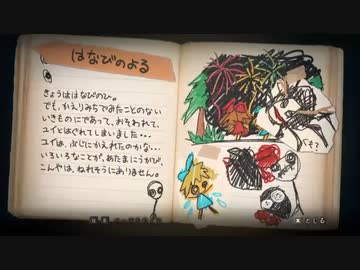 はなびのよる
きょうははなびのひ。
でも、かえりみちでみたことのない
いきものにであって、おそわれて、
ユイとはぐれてしまいました・・・
ユイは、ぶじにかえれたのかな・・・
いろいろなことが、あたまにうかび、
こんやは、ねれそうにありません。
とじる